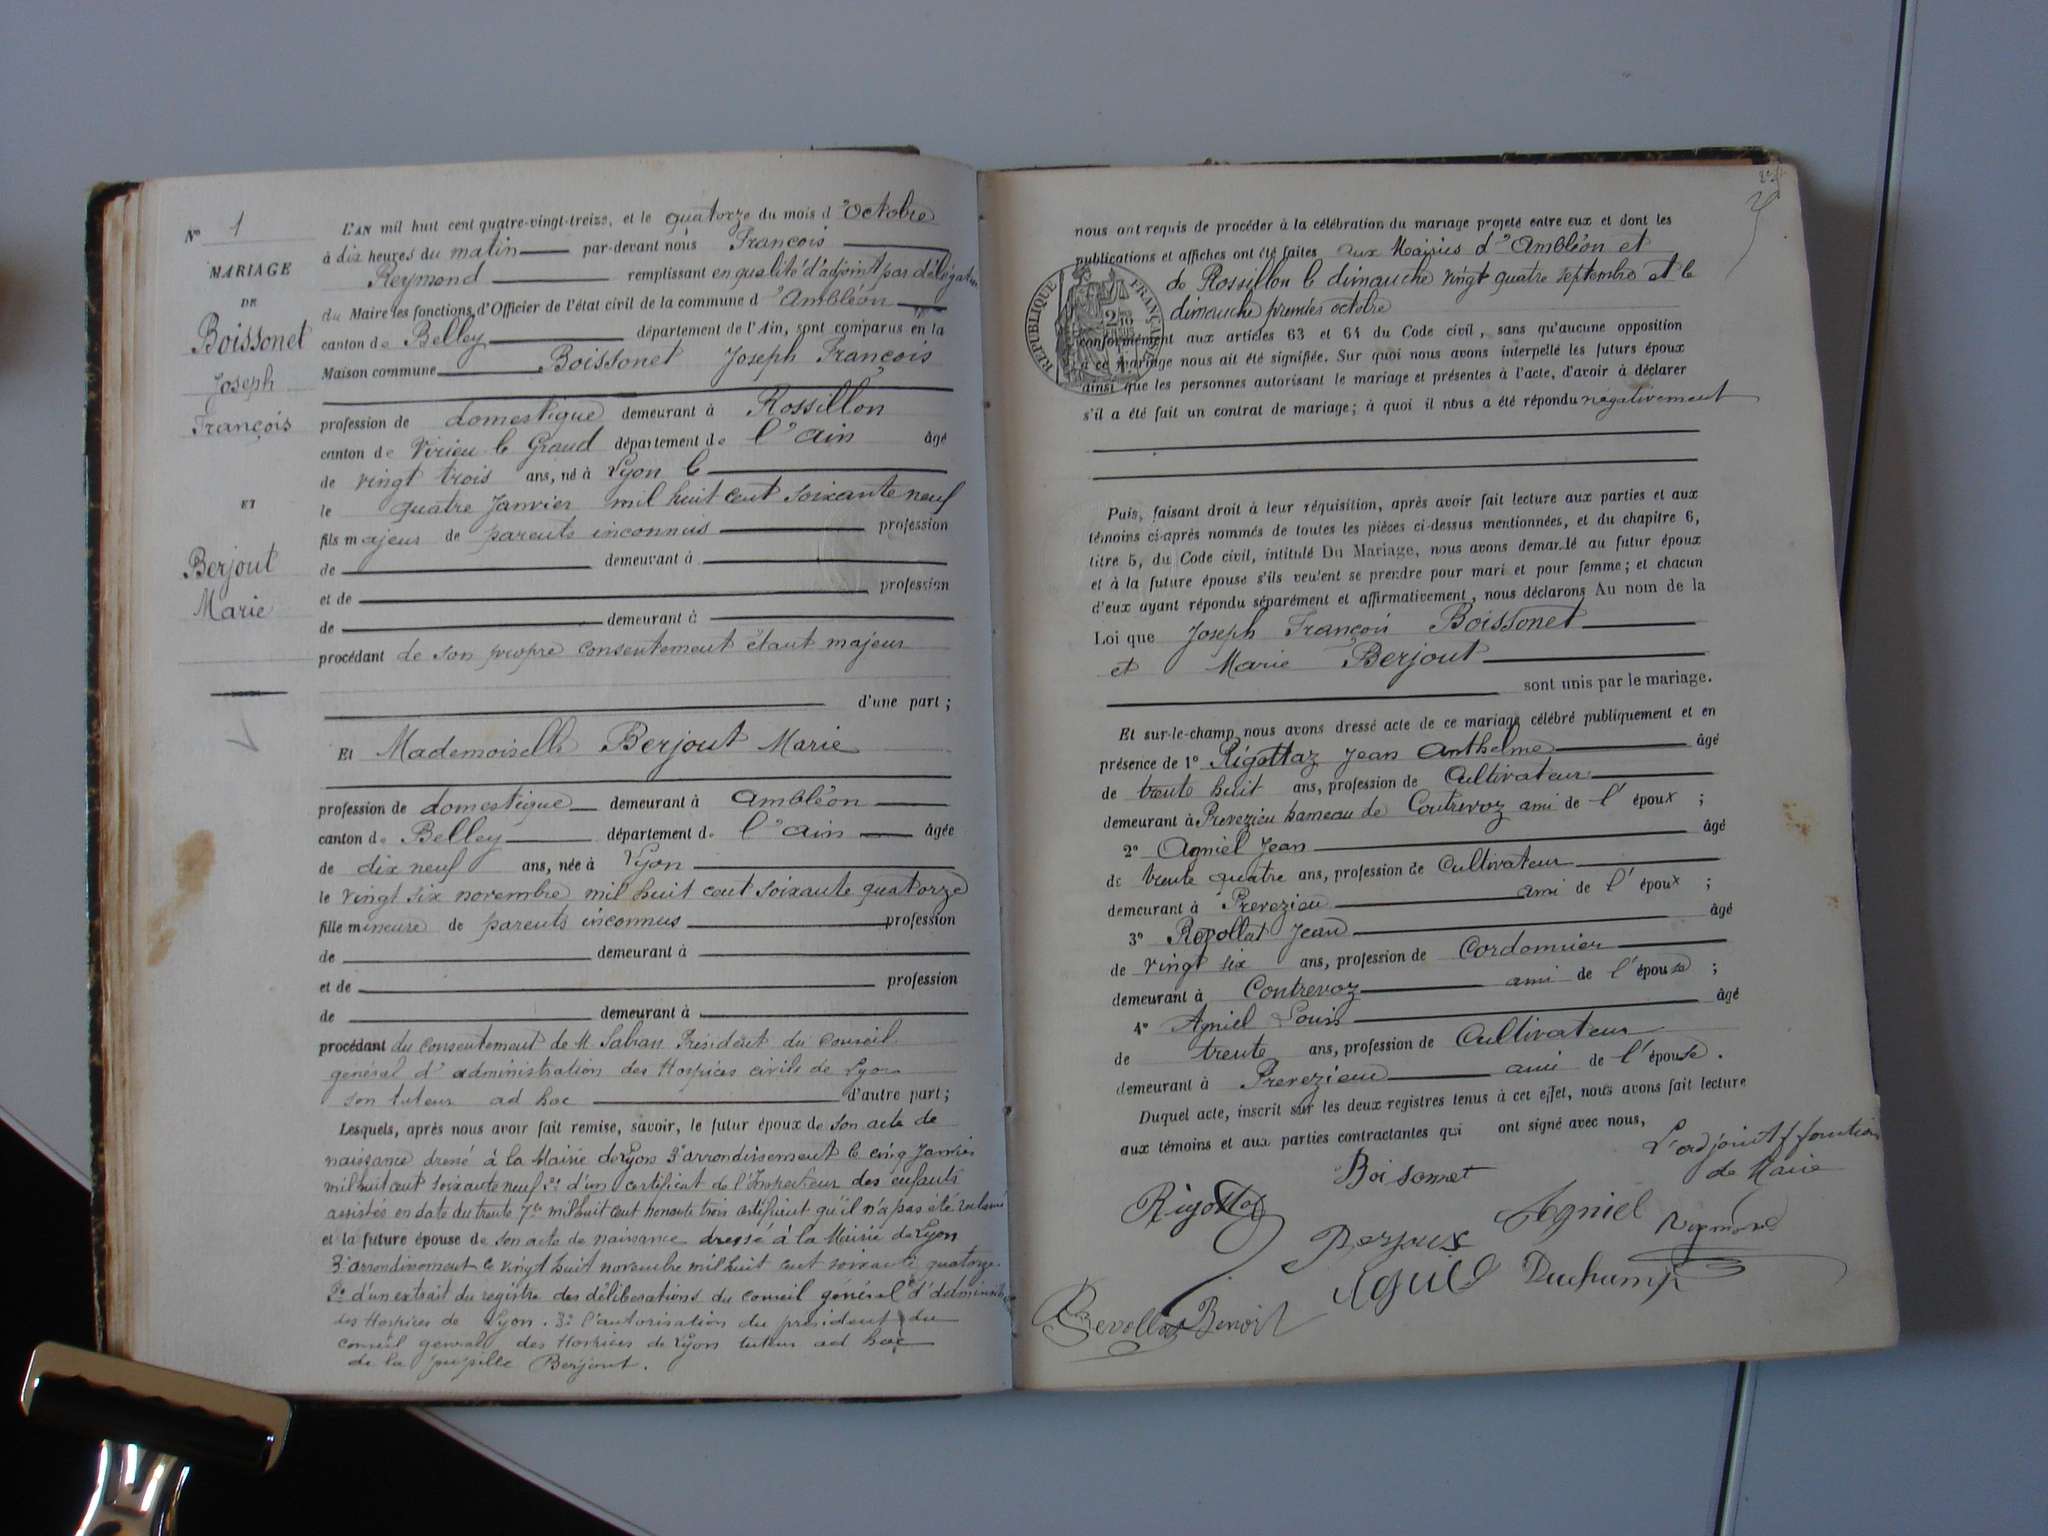 N° 1
MARIAGE
DE
Boissonet
Joseph
François
ET
Berjout
Marie
L'AN mil huit cent quatre-vingt-treize, et le quatorze du mois d'Octobre
à dix heures du matin par-devant nous François
Reymond remplissant en qualité d'adjoint par délégation
du Maire les fonctions d'Officier de l'état civil de la commune d'Ambléon
canton de Belley département de l'Ain, sont comparus en la
Maison commune Boissonet Joseph François
profession de domestique demeurant à Rossillon
canton de Virieu le Grand département de l'ain âgé
de vingt trois ans, né à Lyon le
le quatre Janvier mil huit cent soixante neuf
fils majeur de parents inconnus profession
de demeurant à
et de profession
de demeurant à
procédant de son propre consentement étant majeur
d'une part;
Et Mademoiselle Berjout Marie
profession de domestique demeurant à Ambléon
canton de Belley département de l'ain âgée
de dix neuf ans, née à Lyon
le vingt six novembre mil huit cent soixante quatorze
fille mineure de parents inconnus profession
de demeurant à
et de profession
de demeurant à
procédant du consentement de M. Sabran Président du conseil
général d'administration des Hospices civils de Lyon
son tuteur ad hoc d'autre part;
Lesquels, après nous avoir fait remise, savoir, le futur époux de son acte de
naissance dressé à la Mairie de Lyon 3e arrondissement le cinq Janvier
mil huit cent soixante neuf 2° d'un certificat de l'Inspecteur des enfants
assistés en date du trente 7bre mil huit cent nonante trois certifiant qu'il n'a pas été réclamé
et la future épouse de son acte de naissance dressé à la Mairie de Lyon
3e arrondissement le vingt huit novembre mil huit cent soixante quatorze
2° d'un extrait du registre des délibérations du conseil général d'administ
des Hospices de Lyon. 3° l'autorisation du président du
conseil général des Hospices de Lyon tuteur ad hoc
de la pupille Berjout.
nous ont requis de procéder à la célébration du mariage projeté entre eux et dont les
publications et affiches ont été faites aux Mairies d'Ambléon et
de Rossillon le dimanche vingt quatre septembre et le
dimanche premier octobre
RÉPUBLIQUE FRANÇAISE
conformément aux articles 63 et 64 du Code civil, sans qu'aucune opposition
à ce mariage nous ait été signifiée. Sur quoi nous avons interpellé les futurs époux
ainsi que les personnes autorisant le mariage et présentes à l'acte, d'avoir à déclarer
s'il a été fait un contrat de mariage; à quoi il nous a été répondu négativement
Puis, faisant droit à leur réquisition, après avoir fait lecture aux parties et aux
témoins ci-après nommés de toutes les pièces ci-dessus mentionnées, et du chapitre 6,
titre 5, du Code civil, intitulé Du Mariage, nous avons demandé au futur époux
et à la future épouse s'ils veulent se prendre pour mari et pour femme; et chacun
d'eux ayant répondu séparément et affirmativement, nous déclarons Au nom de la
Loi que Joseph François Boissonet
et Marie Berjout
sont unis par le mariage.
Et sur-le-champ nous avons dressé acte de ce mariage célébré publiquement et en
présence de 1° Rigottaz Jean Anthelme âgé
de trente huit ans, profession de Cultivateur
demeurant à Prevezieu hameau de Contrevoz ami de l'époux;
2° Agniel Jean âgé
de trente quatre ans, profession de Cultivateur
demeurant à Prevezieu ami de l'époux;
3° Revollat Jean âgé
de vingt six ans, profession de Cordonnier
demeurant à Contrevoz ami de l'épouse;
4° Agniel Louis âgé
de trente ans, profession de Cultivateur
demeurant à Prevezieu ami de l'épouse.
Duquel acte, inscrit sur les deux registres tenus à cet effet, nous avons fait lecture
aux témoins et aux parties contractantes qui ont signé avec nous,
L'adjoint f. fonction
de Maire
Boissonnet
Rigottaz
Agniel
Reymond
Berjoux
Agniel
Duchamp
Revollat Benoit